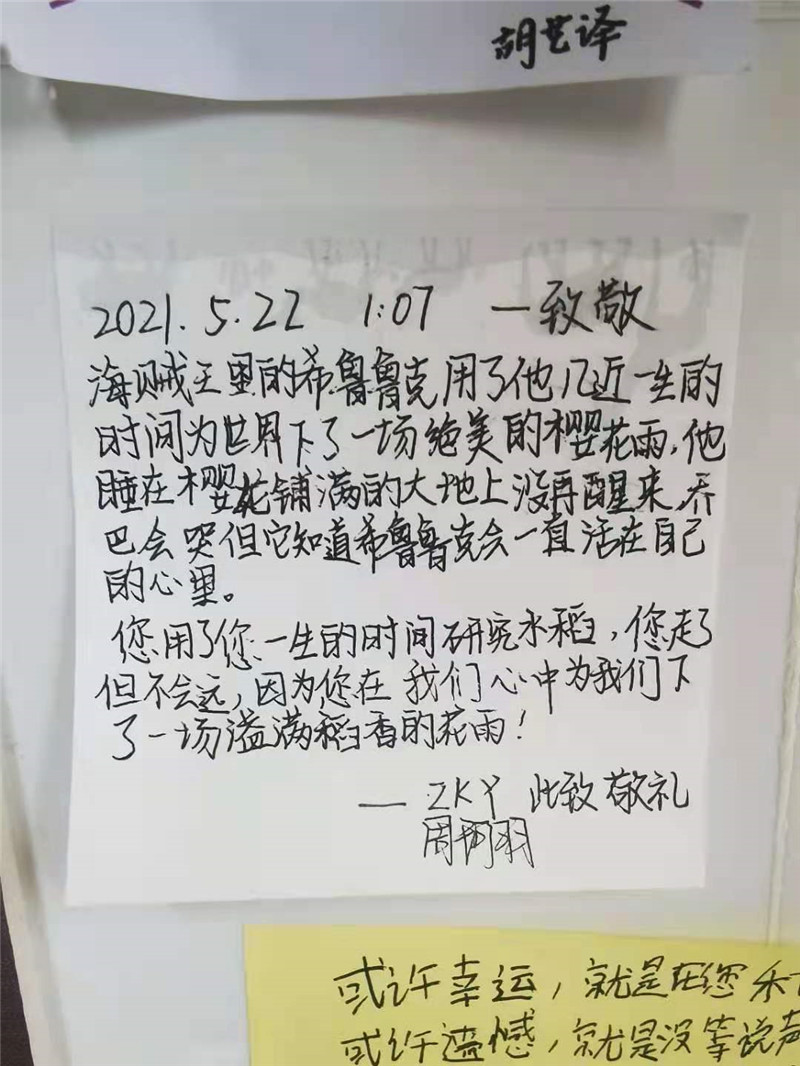 胡艺译
2021.5.22 1:07 一致敬
海贼王里的希鲁鲁克用了他几近一生的
时间为世界下了一场绝美的樱花雨,他
睡在樱花铺满的大地上没再醒来,乔
巴会哭但它知道希鲁鲁克会一直活在自己
的心里。
您用了您一生的时间研究水稻,您走了
但不会远,因为您在我们心中为我们下
了一场溢满稻香的花雨!
— ZKY 此致敬礼
周珂羽
或许幸运,就是在您禾
或许遗憾,就是没等说声